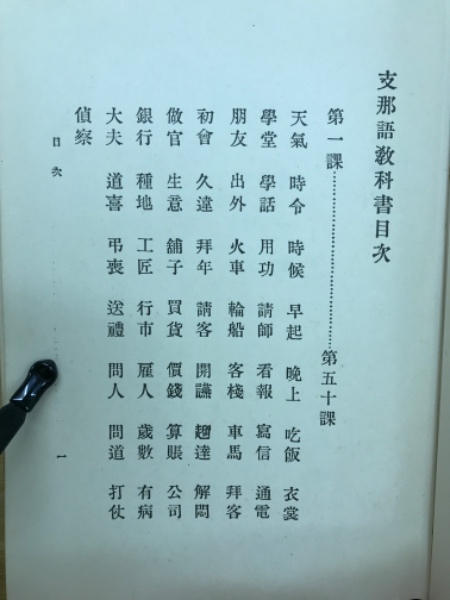 支那語教科書目次
第一課……………………………第五十課
天氣 時令 時候 早起 晚上 吃飯 衣裳
學堂 學話 用功 請師 看報 寫信 通電
朋友 出外 火車 輪船 客棧 車馬 拜客
初會 久違 拜年 請客 開讌 趨達 解悶
做官 生意 舖子 買貨 價錢 算賬 公司
銀行 種地 工匠 行市 雇人 歲數 有病
大夫 道喜 弔喪 送禮 問人 問道 打仗
偵察
目次
一